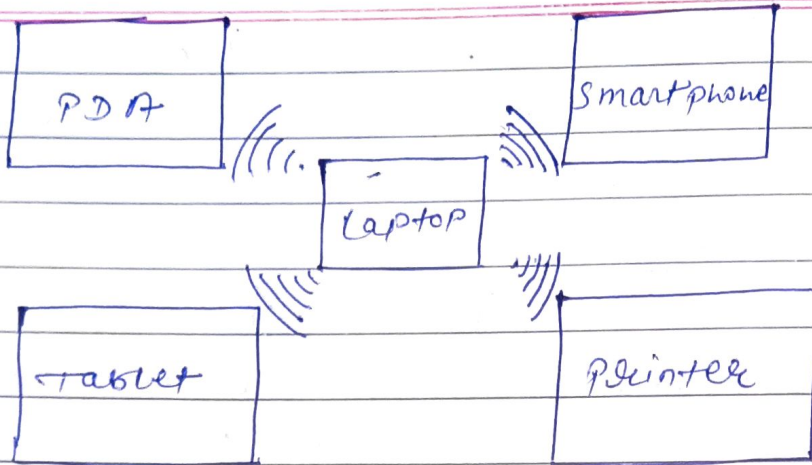 PDA
Smartphone
Laptop
Tablet
Printer